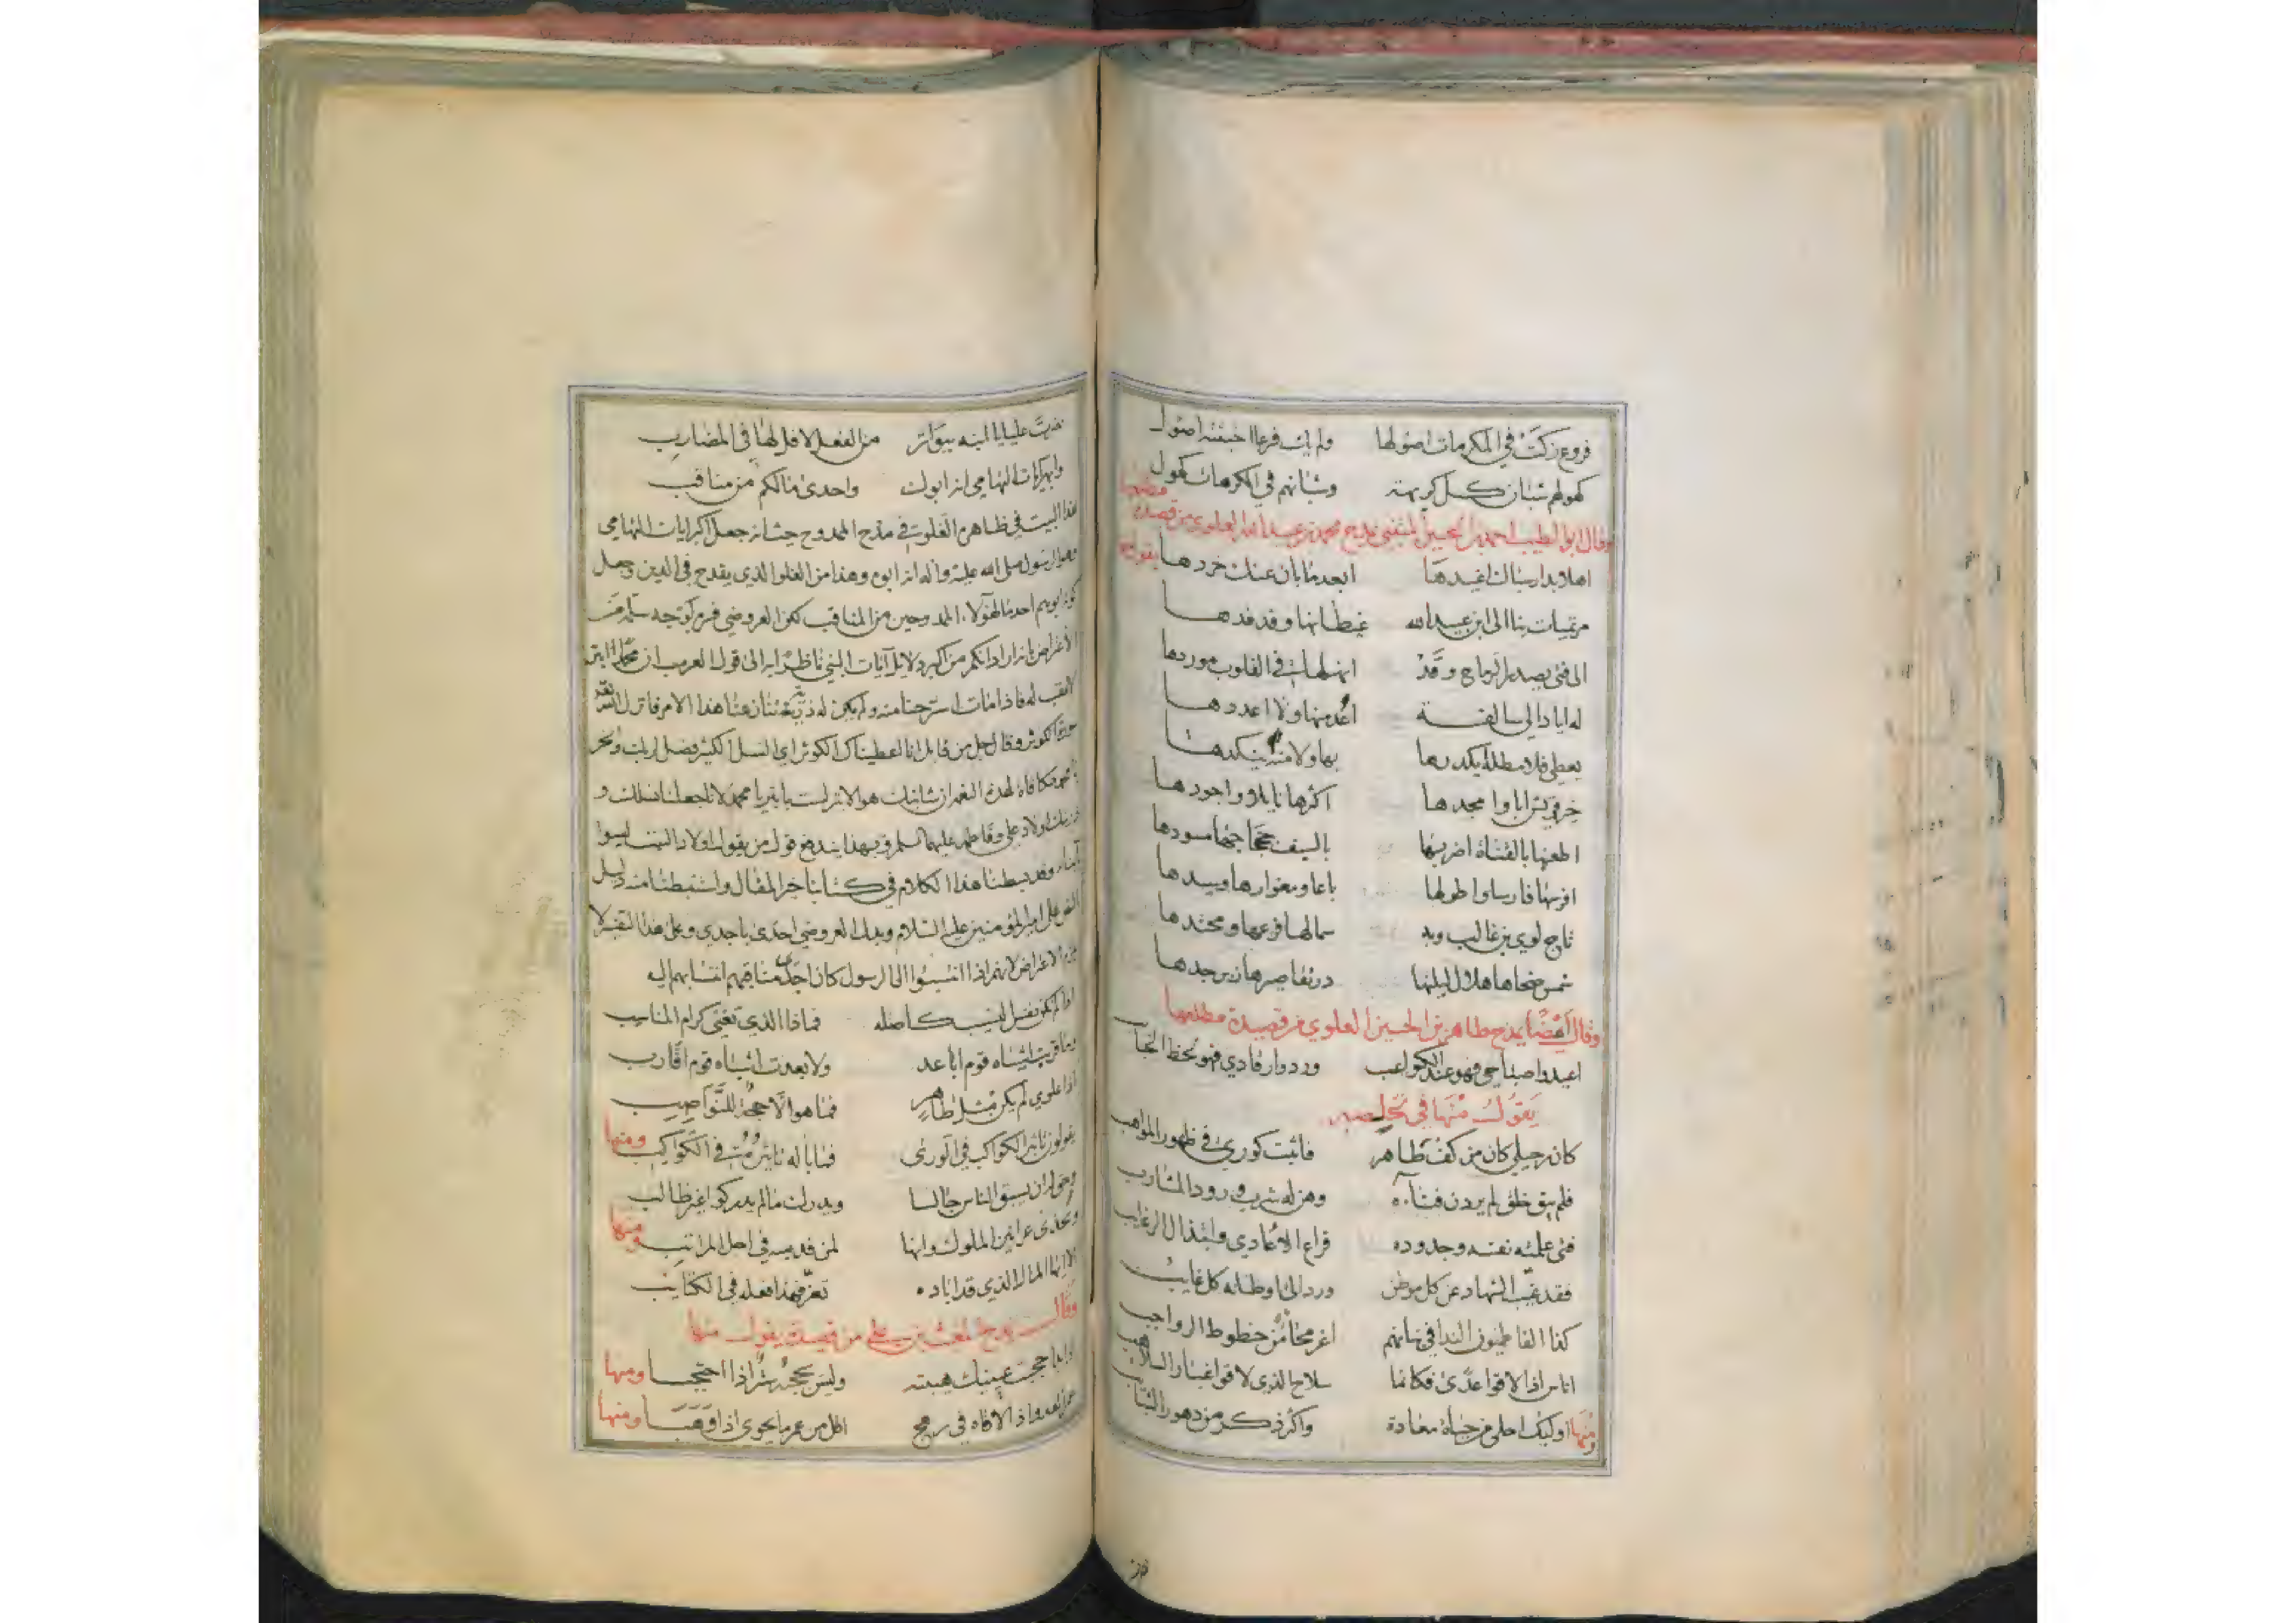 فروع زكت في المكرمات اصولها ولم يك فرعا اخبثته اصول
كهولهم شبان كل كريهة وشبانهم في المكرمات كهول
وقال ابو الطيب احمد بن الحسين المتنبي يمدح محمد بن عبيد الله العلوي من قصيدة مطلعها
اهلا بدار سباك اغيدها ابعد ما بان عنك خردها يقول
مرتميات بنا الى ابن عبيد الله غيطانها وفدفدها
الى فتى يصدر الرماح وقد انهلها في القلوب موردها
له اياد الي سالفة اعد منها ولا اعددها
يعطي فلا مطله يكدرها بها ولا منه ينكدها
خير قريش ابا وامجدها اكثرها نايلا واجودها
اطعنها بالقناة اضربها بالسيف جحجاحها مسودها
افرسها فارسا واطولها باعا ومغوارها وسيدها
تاج لوي بن غالب وبه سما لها فرعها ومحتدها
شمس ضحاها هلال ليلتها در تقاصيرها زبرجدها
وقال ايضا يمدح طاهر بن الحسين العلوي من قصيدة مطلعها
اعيدوا صباحي فهو عند الكواعب وردوا رقادي فهو لحظ الحبايب
يقول منها في تخلصه
كان رحيلي كان من كف طاهر فاثبت كوري في ظهور المواهب
فلم يبق خلق لم يردن فناءه وهن له شرب ورود المشارب
فتى علمته نفسه وجدوده قراع الاعادي وابتذال الرغايب
فقد غيب الشهاد عن كل موطن ورد الى اوطانه كل غايب
كذا الفاطميون الندا في بنانهم اعز محاء من خطوط الرواجب
اناس اذا لاقوا عدى فكانما سلاح الذي لاقوا غبار السلاهب
ومنها اوليك احلى من حياة معادة واكثر ذكرا من دهور الشبايب
نصرت عليا يا ابنه ببواتر من الفعل لا فل لها في المضارب
وابهر ايات التهامي انه ابوك واحدى ما لكم من مناقب
هذا البيت في ظاهره الغلو في مدح الممدوح حيث انه جعل اكبر ايات التهامي
وهو الرسول صلى الله عليه وآله انه ابوه وهذا من الغلو الذي يقدح في الدين وجعل
كونه ابوهم احد ما لهؤلاء الممدوحين من المناقب
الاعراض بانه اراد انكم من اكبر دلايل آيات النبي ناظرا به الى قول العرب ان محمدا ابتر
لا عقب له فاذا مات استرحنا منه ولم يكن له ذرية
الكوثر وقال جل من قايل انا اعطيناك الكوثر اي النسل الكثير فصل لربك وانحر
مكافاة لهذه النعم ان شانئك هو الابتر لست بابتر يا محمد لانا جعلنا نسلك و
ذريتك اولاد علي وفاطمة عليهما السلم وبهذا يندفع قول من يقول اولاد البنت ليسوا
ابناء وقد بسطنا هذا الكلام في كتابنا خير المقال واستنبطنا منه دليل
النص على امير المؤمنين عليه السلام وبدل العروضي احدى باجدى وعلى هذا التقدير لا
الاعتراض لانهم اذا انتسبوا الى الرسول كان اجدى مناقبهم انتسابهم اليه
اذا لم تكن نفس النسيب كاصله فماذا الذي تغني كرام المناسب
وما قربت اشباه قوم اباعد ولا بعدت اشباه قوم اقارب
اذا علوي لم يكن مثل طاهر فما هو الا حجة للنواصب
يقولون تاثير الكواكب في الورى فما باله تاثيره في الكواكب ومنها
وحق له ان يسبق الناس جالسا ويدرك ما لم يدركوا غير طالب
ويحذى عرانين الملوك وانها لمن قدميه في اجل المراتب ومنها
الا ايها المال الذي قد اباده تعز فهذا فعله في الكتايب
وقال يمدح المغيث بن علي من قصيدة يقول منها
اذا بدا حجبت عينيك هيبته وليس يحجبه ستر اذا احتجبا ومنها
عمر العدو اذا لاقاه في رهج اقل من عمر ما يحوي اذا وهبا ومنها